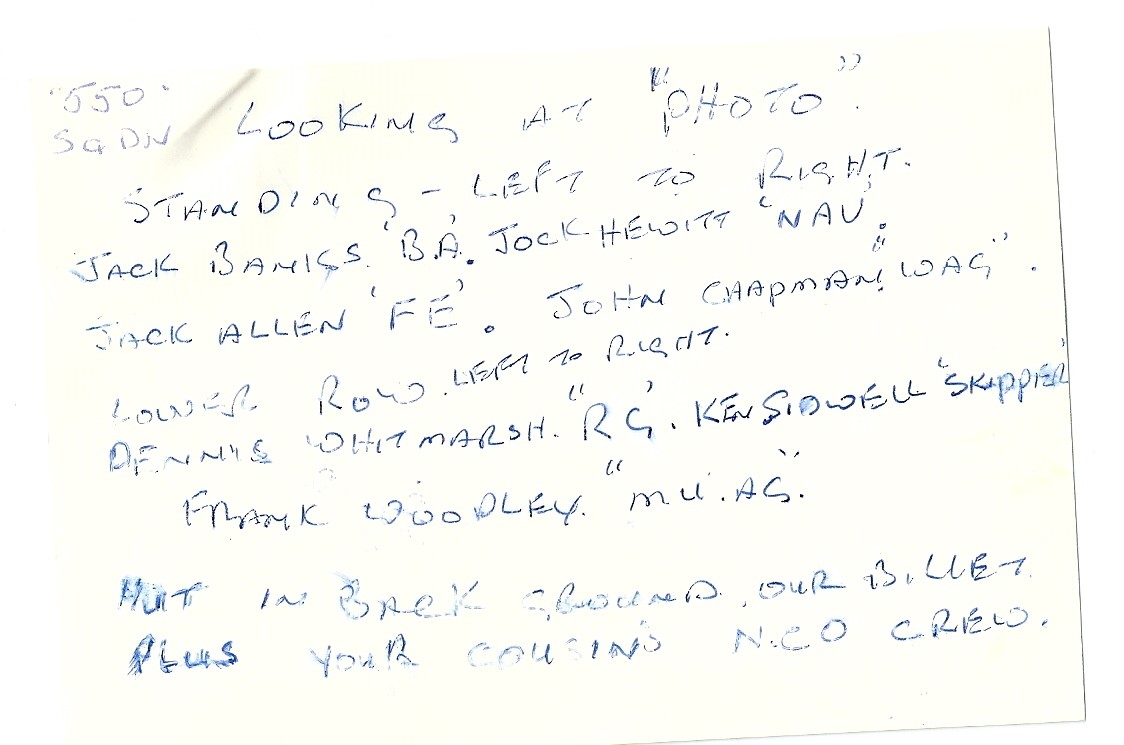 "550"
SQDN
LOOKING AT "PHOTO".
STANDING - LEFT TO RIGHT.
JACK BANKS. 'B.A'. JOCK HEWITT 'NAV'.
JACK ALLEN 'FE'. JOHN CHAPMAN "WAG".
LOWER ROW. LEFT TO RIGHT.
DENNIS WHITMARSH. "RG". KEN SIDWELL "SKIPPER"
FRANK WOODLEY. "M.U.AG."
HUT IN BACK GROUND. OUR BILLET
PLUS YOUR COUSINS N.CO CREW.